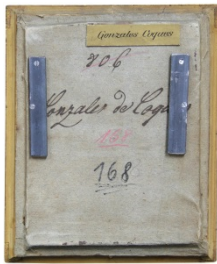 Gonzales Coques
206
Gonzales de Coques
138
168